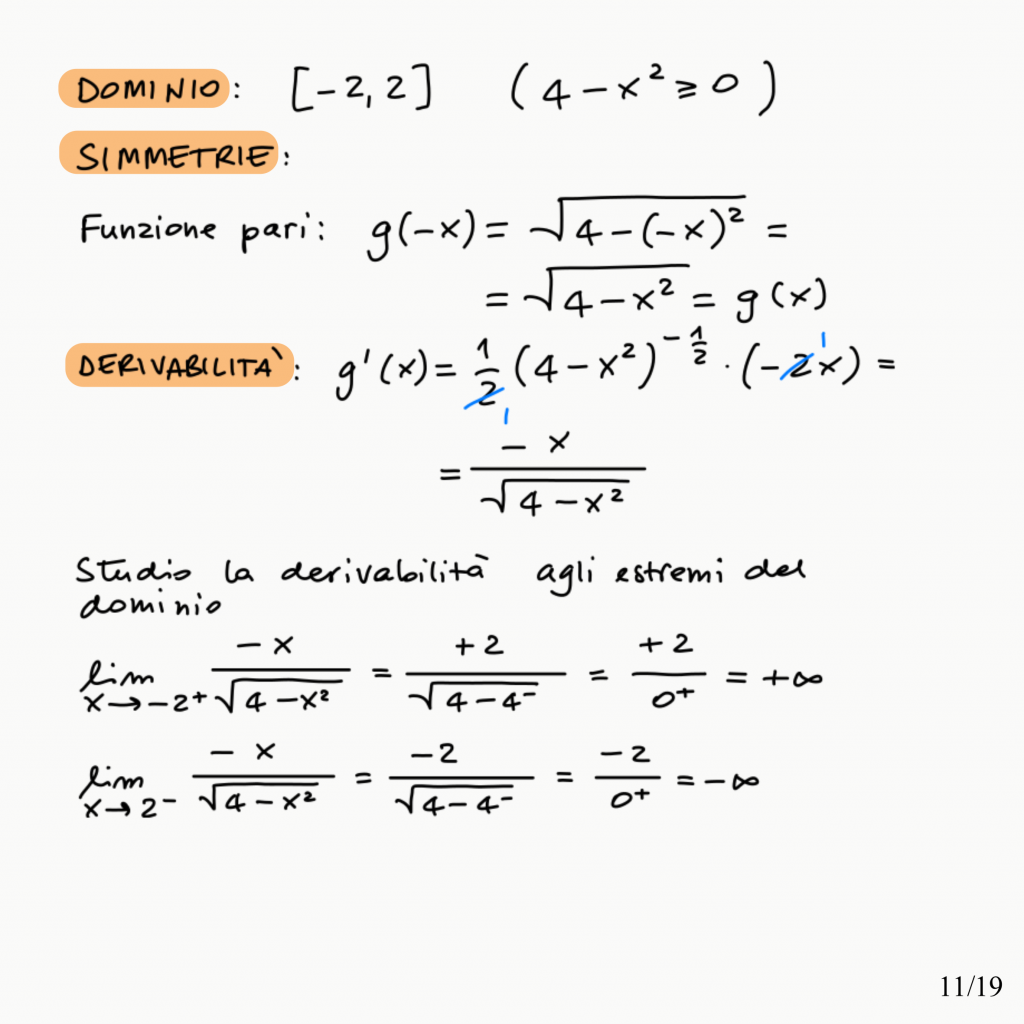 DOMINIO: [-2, 2] (4 - x² ≥ 0)
SIMMETRIE:
Funzione pari: g(-x) = √(4 - (-x)²) =
= √(4 - x²) = g(x)
DERIVABILITÀ: g'(x) = 1/2 (4 - x²)^(-1/2) · (-2x) =
1 1
= -x / √(4 - x²)
Studio la derivabilità agli estremi del
dominio
lim x→-2⁺ -x / √(4 - x²) = +2 / √(4 - 4⁻) = +2 / 0⁺ = +∞
lim x→2⁻ -x / √(4 - x²) = -2 / √(4 - 4⁻) = -2 / 0⁺ = -∞
11/19